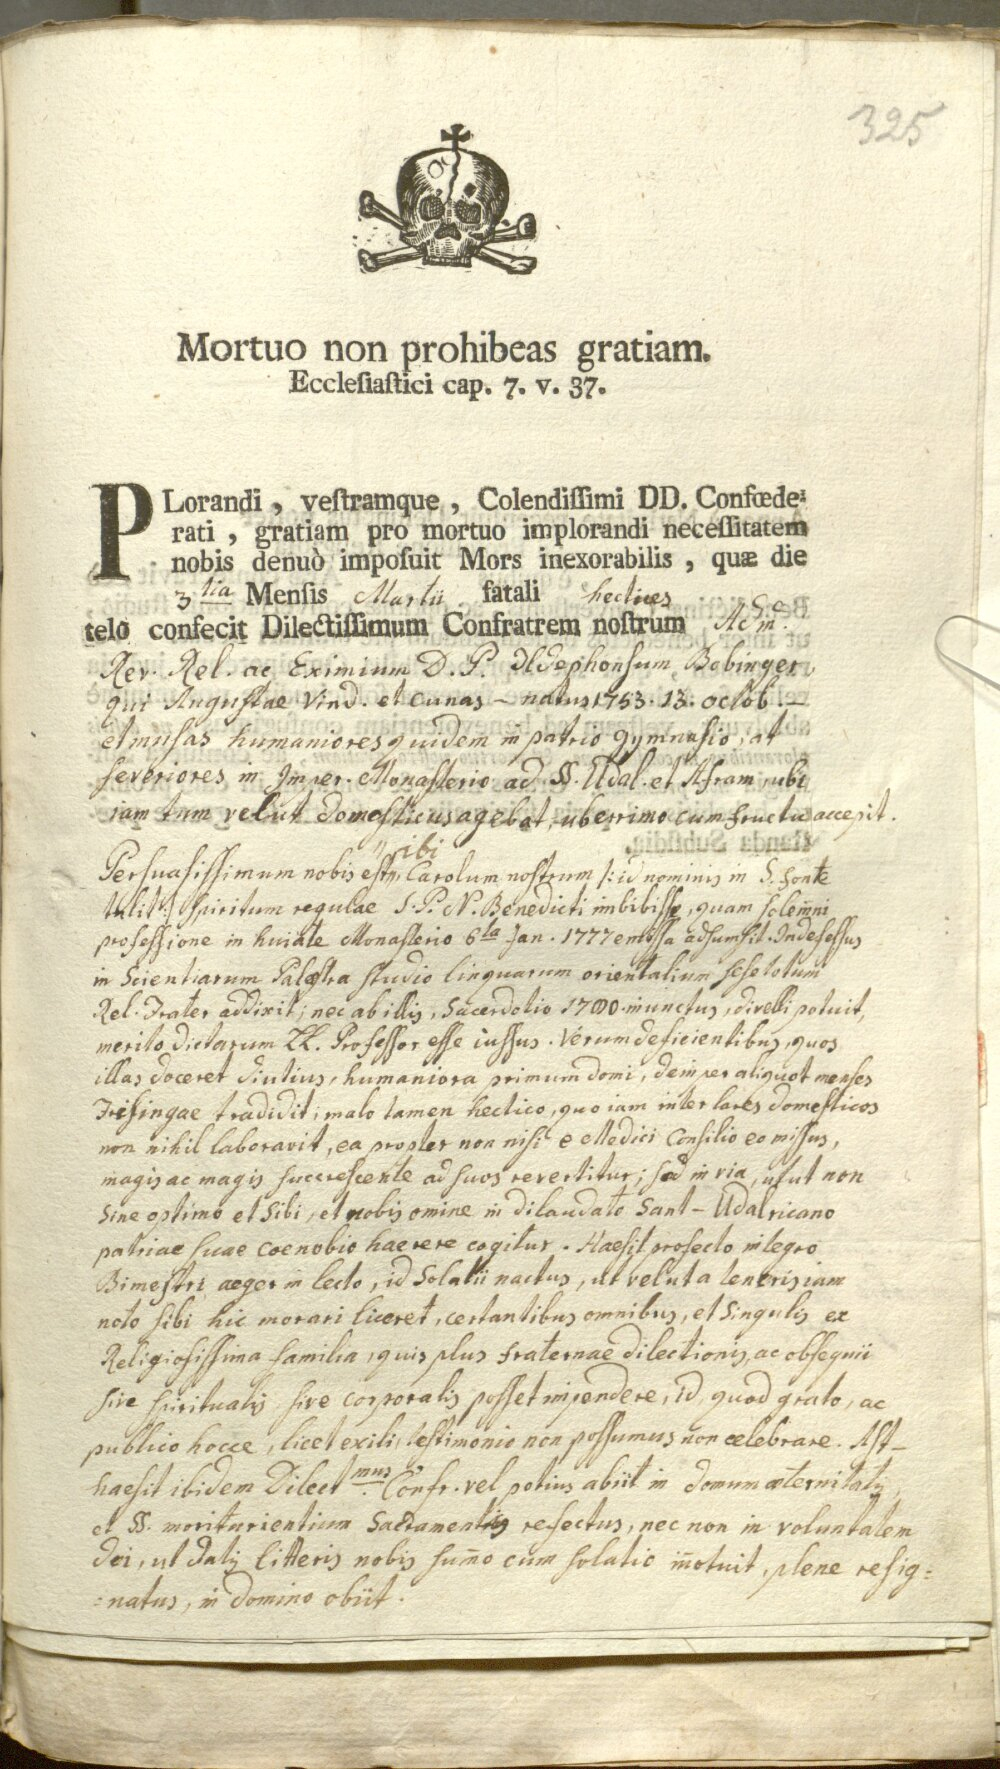 325
Mortuo non prohibeas gratiam.
Ecclesiastici cap. 7. v. 37.
PLorandi, vestramque, Colendissimi DD. Confœde-
rati, gratiam pro mortuo implorandi necessitatem
nobis denuò imposuit Mors inexorabilis, quæ die
3tia Mensis Martii fatali hectices
telo confecit Dilectissimum Confratrem nostrum Adm.
Rev. Rel. ac Eximium D. P. Ildephonsum Bobinger,
qui Augustae Vind. et cunas - natus 1753. 13. octob. -
et musas humaniores quidem in patrio gymnasio, at
severiores in Imper. Monasterio ad SS. Udal. et Afram, ubi
iam tum velut domesticus agebat, uberrimo cum fructu accepit.
sibi
Persuasissimum nobis est, Carolum nostrum /: id nominis in S. fonte
tulit :/ spiritum regulae S. P. N. Benedicti imbibisse, quam solem̄ni
professione in huiate Monasterio 6ta Jan. 1777 emissa adsumsit. Indefessus
in Scientiarum Palæstra studio linguarum orientalium sese totum
Rel. Frater addixit; nec ab illis, Sacerdotio 1780. inunctus, divelli potuit,
merito dictarum LL. Professor esse iussus. Verum deficientibus, quos
illas doceret diutius, humaniora primum domi, dein per aliquot menses
Frisingae tradidit; malo tamen hectico, quo iam inter lares domesticos
non nihil laboravit, ea propter non nisi e Medici Consilio eo missus,
magis ac magis succrescente ad suos revertitur; sed in via, utut non
sine optimo et sibi, et nobis omine in dilaudato Sant-Udalricano
patriae suae coenobio haerere cogitur. Haesit profecto integro
Bimestri aeger in lecto, id solatii nactus, ut velut a teneris iam
noto sibi hic morari liceret, certantibus omnibus, et singulis ex
Religiosissima familia, quis plus fraternae dilectionis, ac obsequii
sive spiritualis, sive corporalis posset impendere, id, quod grato, ac
publico hocce, licet exili, testimonio non possumus non celebrare. Ast-
haesit ibidem Dilectmus Confr. vel potius abiit in domum æternitatis,
et SS. moriturientium Sacramentis refectus, nec non in voluntatem
dei, ut datis litteris nobis sum̄o cum solatio in̄otuit, plene resig=
=natus, in domino obiit.